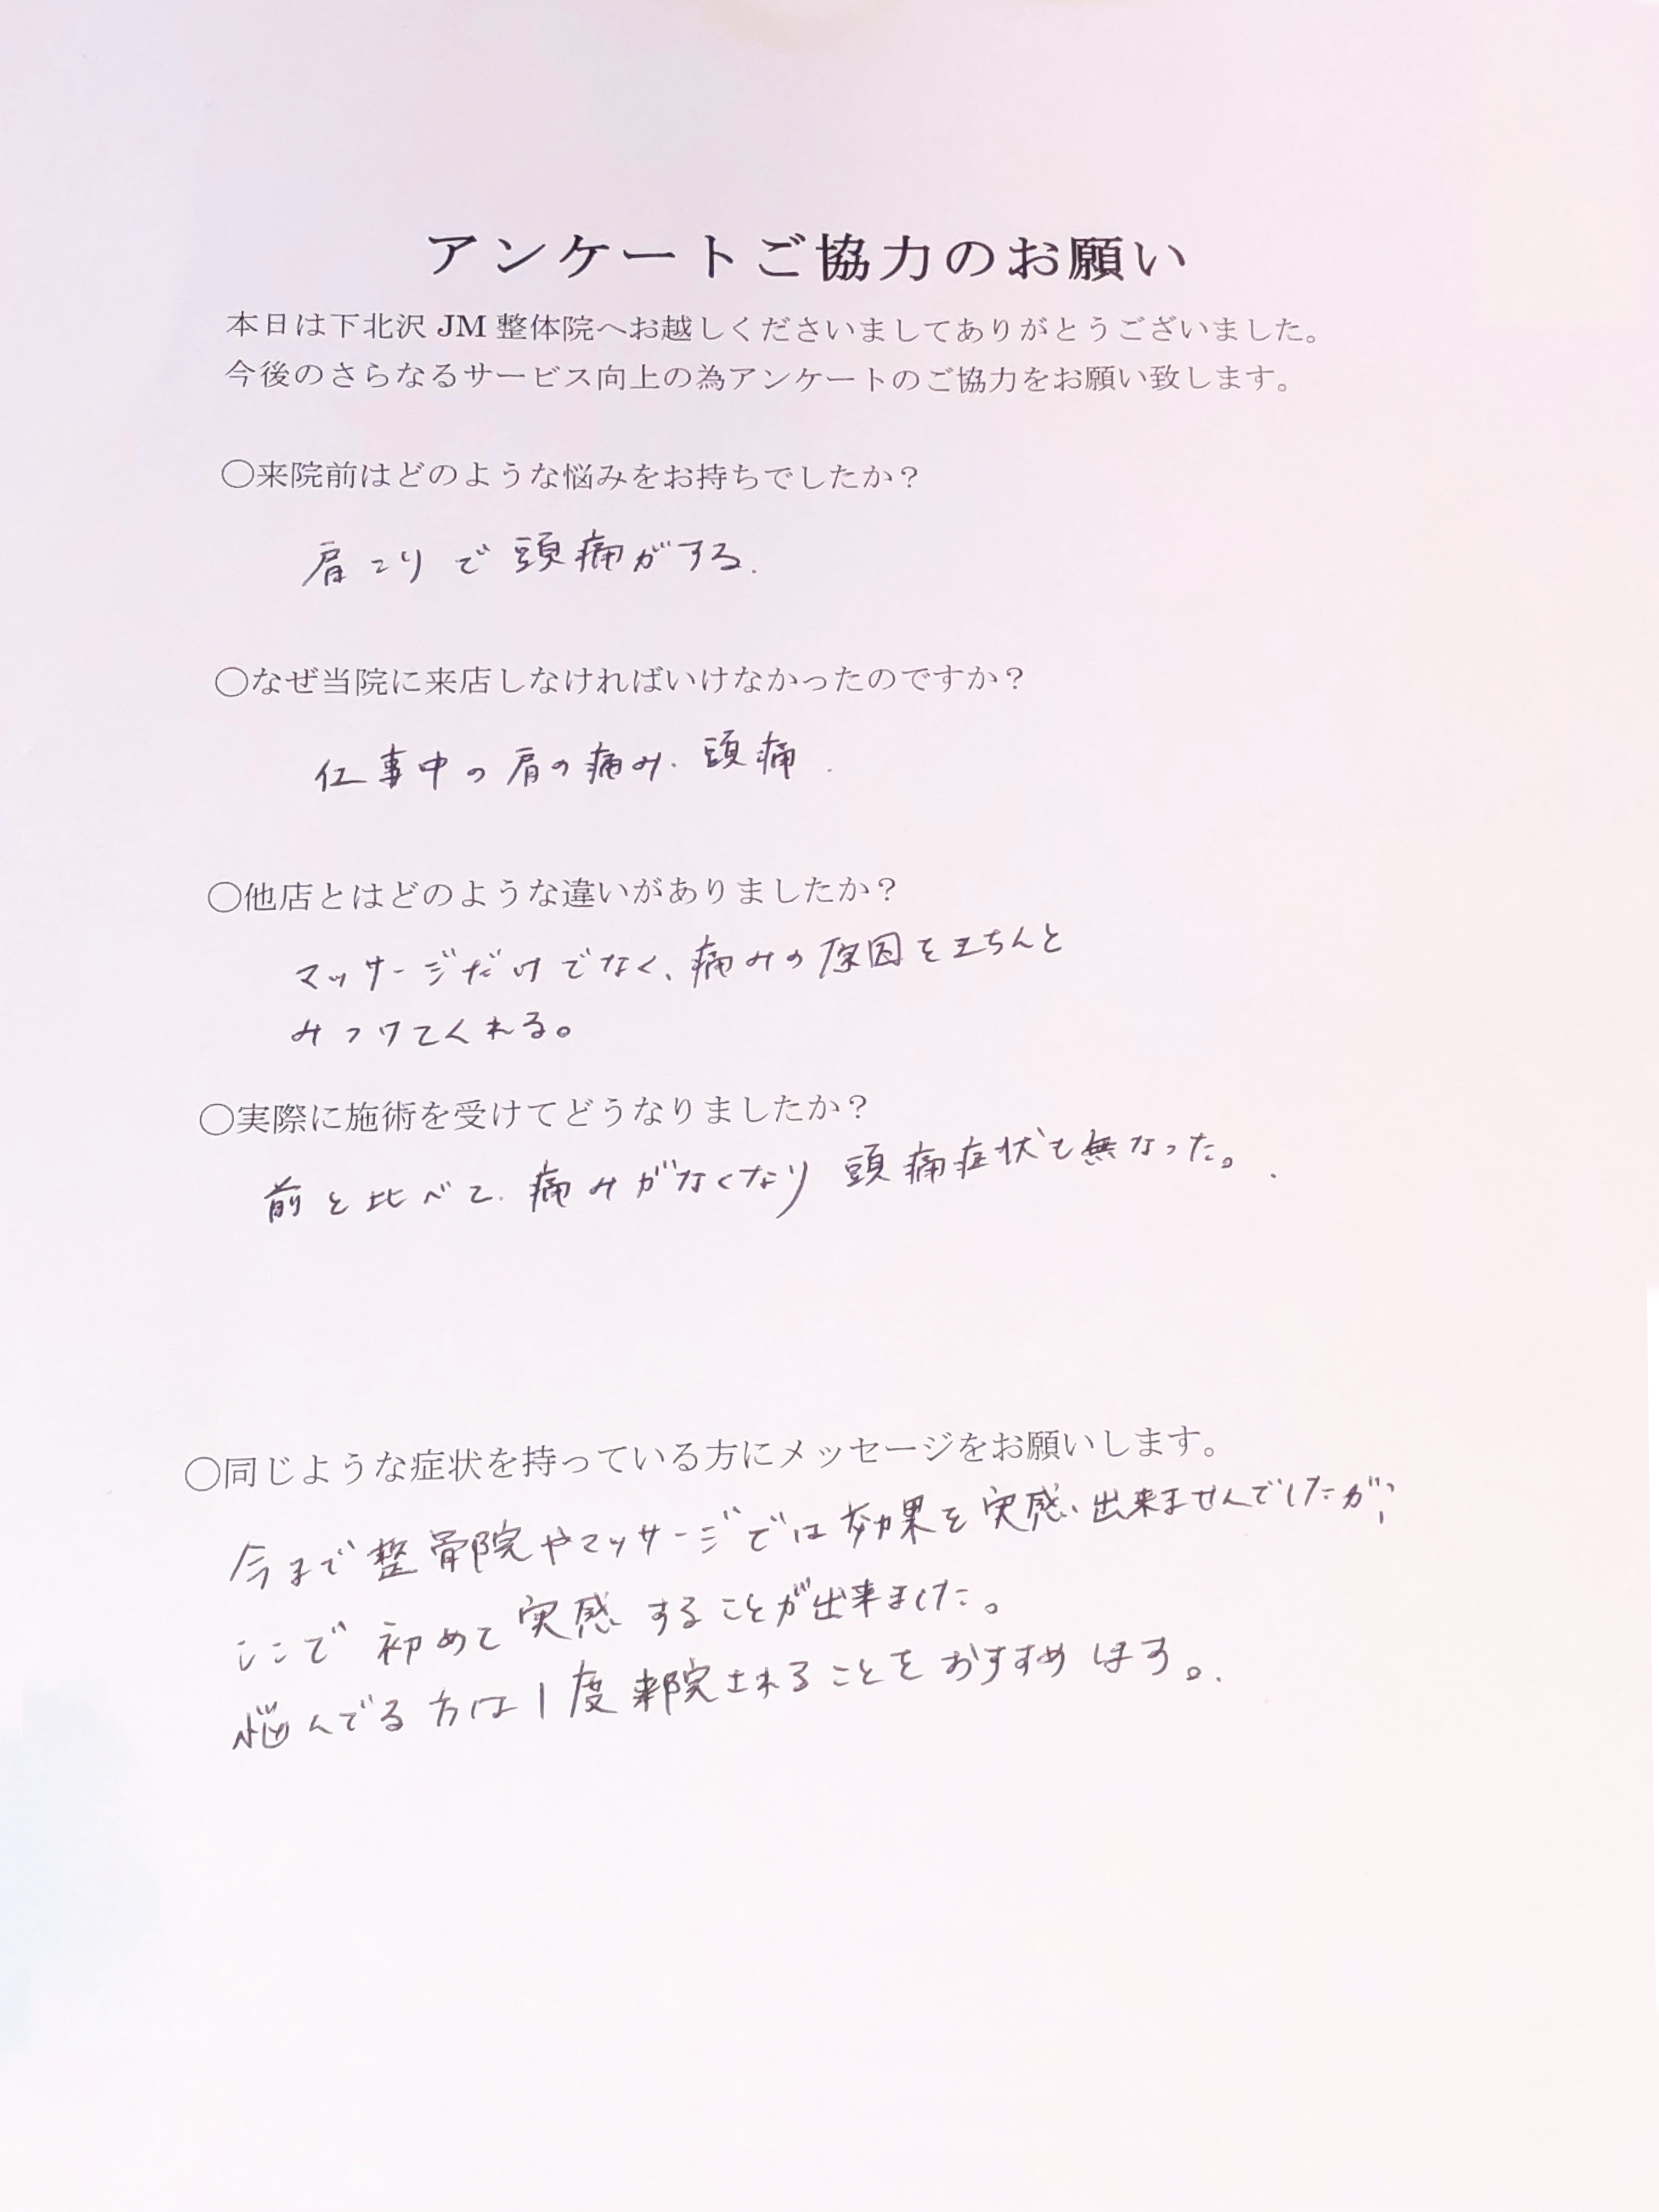 アンケートご協力のお願い
本日は下北沢 JM 整体院へお越しくださいましてありがとうございました。
今後のさらなるサービス向上の為アンケートのご協力をお願い致します。
〇来院前はどのような悩みをお持ちでしたか？
肩こりで頭痛がする.
〇なぜ当院に来店しなければいけなかったのですか？
仕事中の肩の痛み. 頭痛.
〇他店とはどのような違いがありましたか？
マッサージだけでなく、痛みの原因をきちんと
みつけてくれる。
〇実際に施術を受けてどうなりましたか？
前と比べて. 痛みがなくなり頭痛症状も無なった。.
〇同じような症状を持っている方にメッセージをお願いします。
今まで整骨院やマッサージでは効果を実感出来ませんでしたが、
ここで初めて実感することが出来ました。
悩んでる方は1度来院されることをおすすめします。.